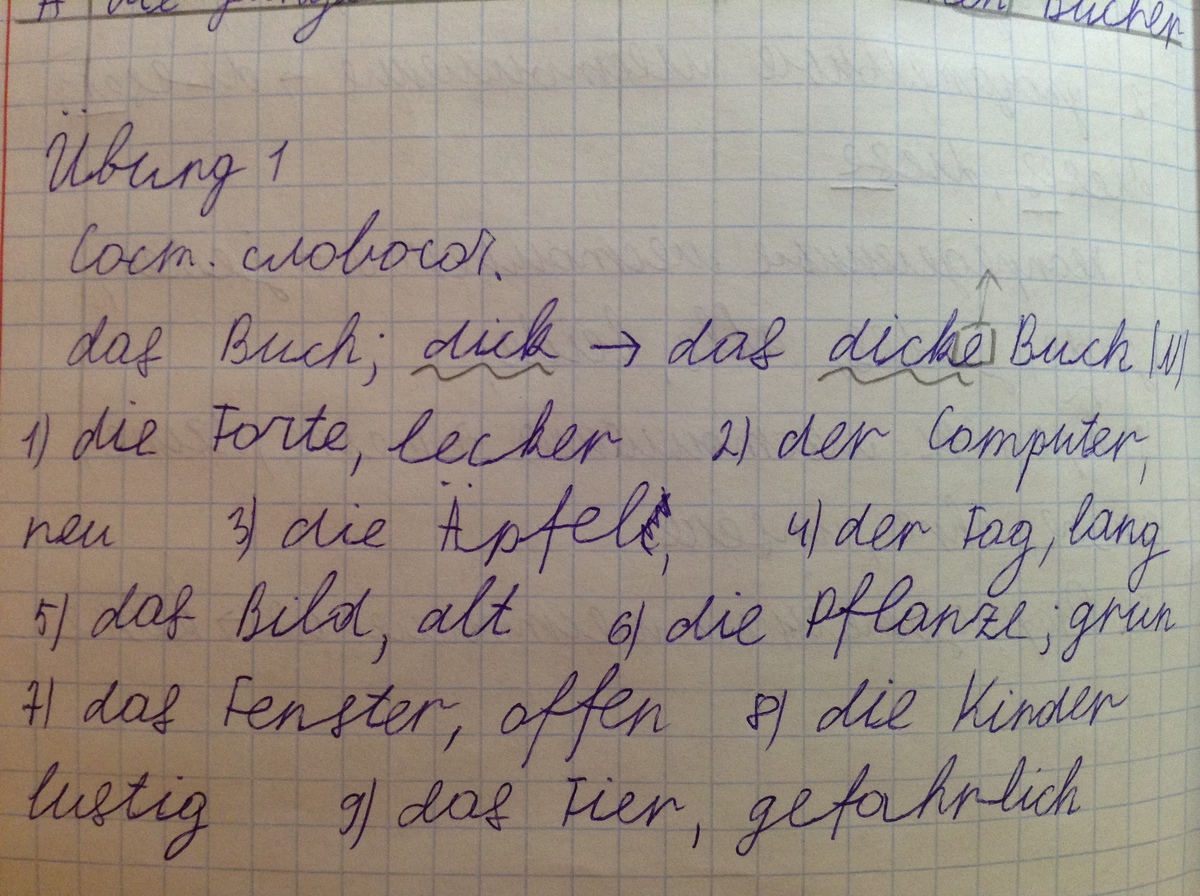 Bücher
Übung 1
Сост. словосоч.
das Buch; dick → das dicke Buch (N)
1) die Torte, lecker 2) der Computer,
neu 3) die Äpfel, 4) der Tag, lang
5) das Bild, alt 6) die Pflanze; grun
7) das Fenster, offen 8) die Kinder
lustig 9) das Tier, gefahrlich